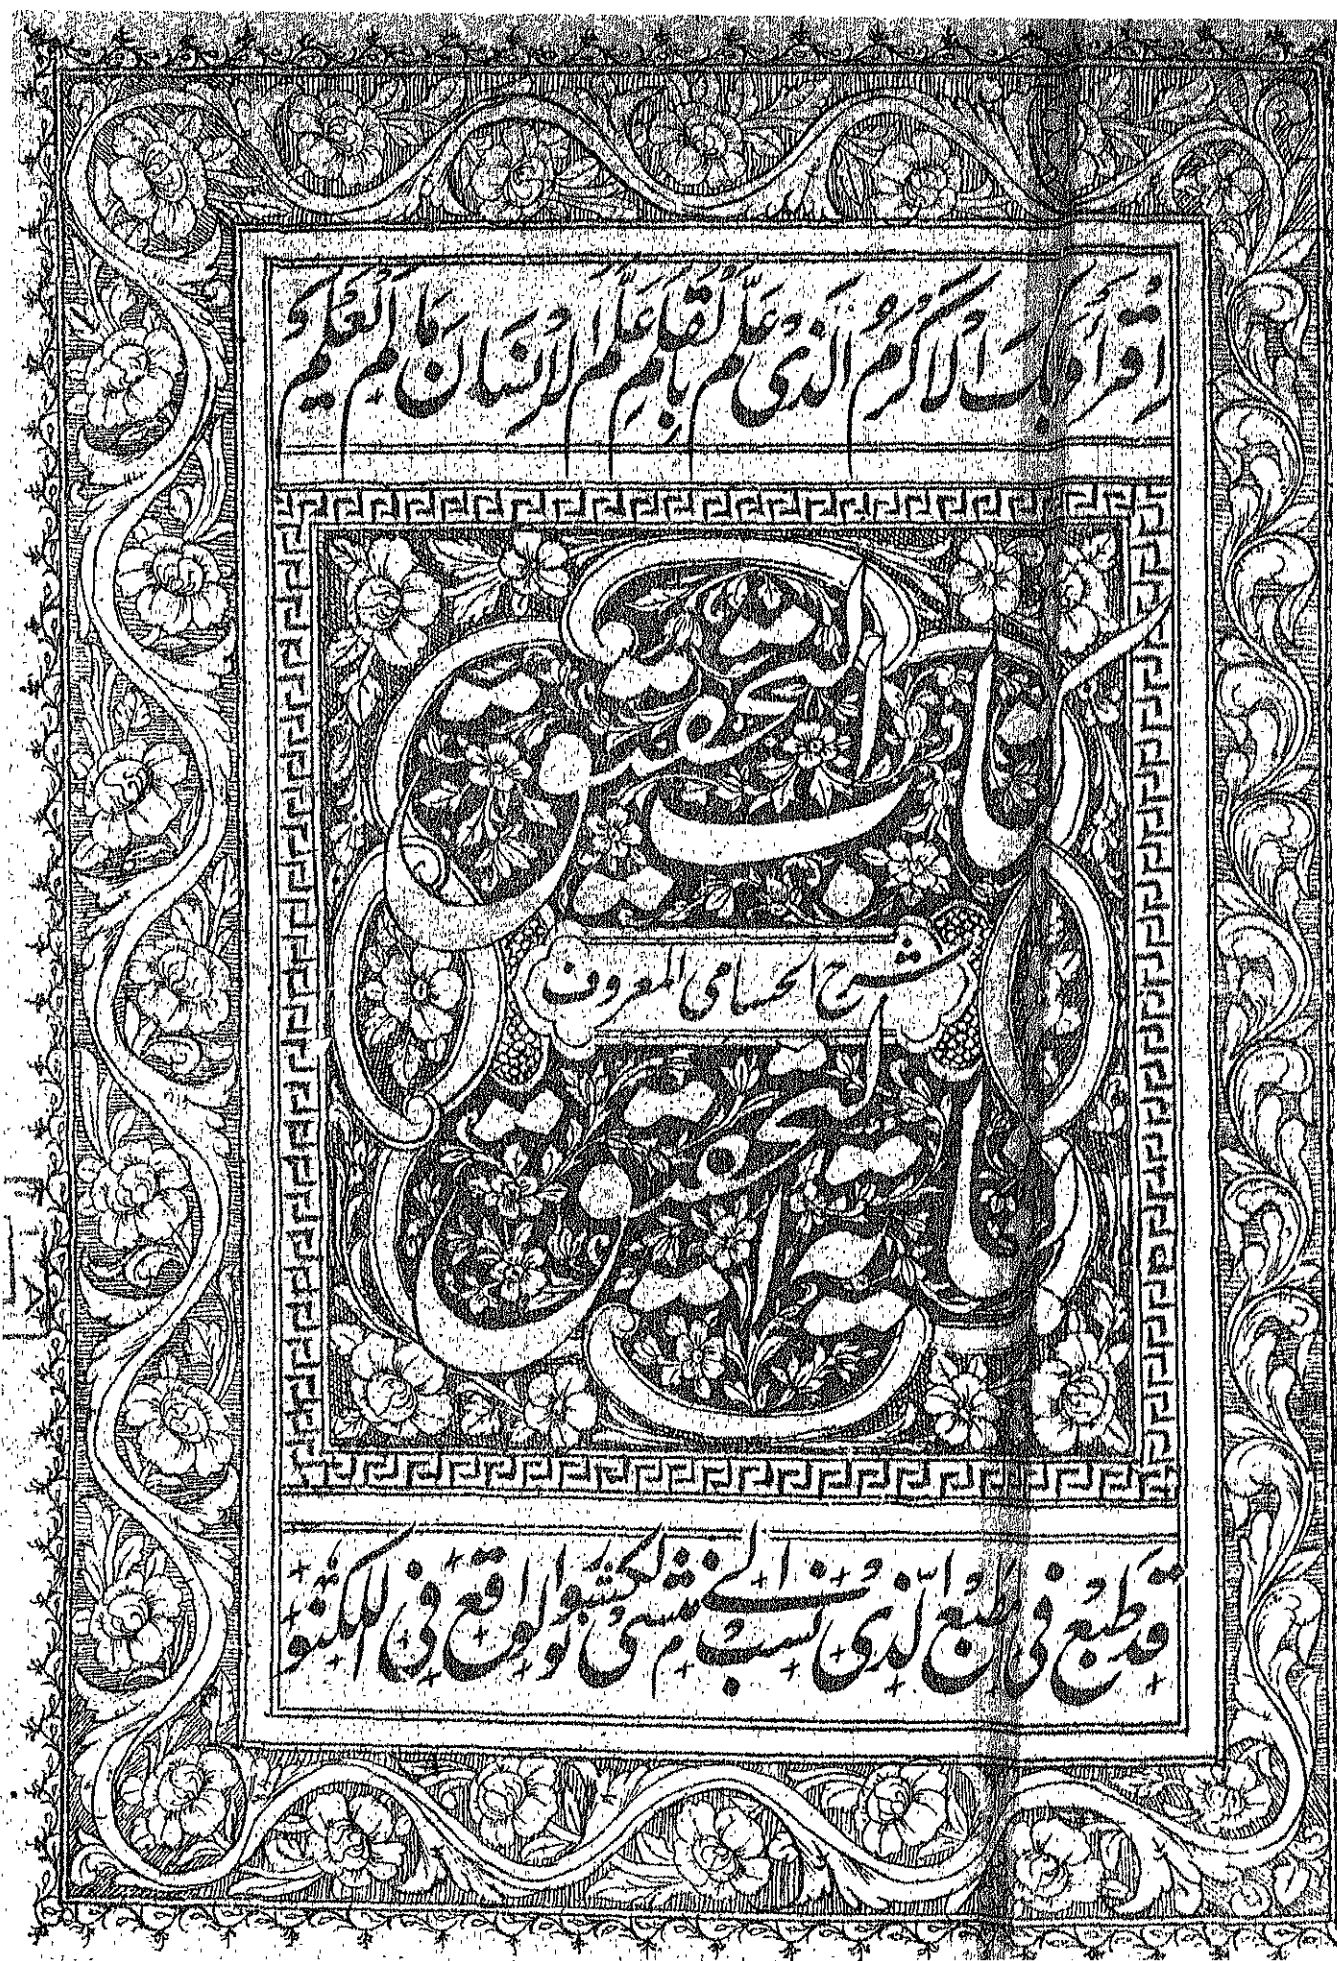 اِقْرَأْ وَرَبُّكَ الْاَكْرَمُ الَّذِى عَلَّمَ بِالْقَلَمِ عَلَّمَ الْاِنْسَانَ مَا لَمْ يَعْلَمْ
كتاب التحقيق
شرح الحسامى المعروف
بغاية التحقيق
قد طبع فى المطبع الذى نسب الى منشى نولكشور الواقع فى اللكنؤ